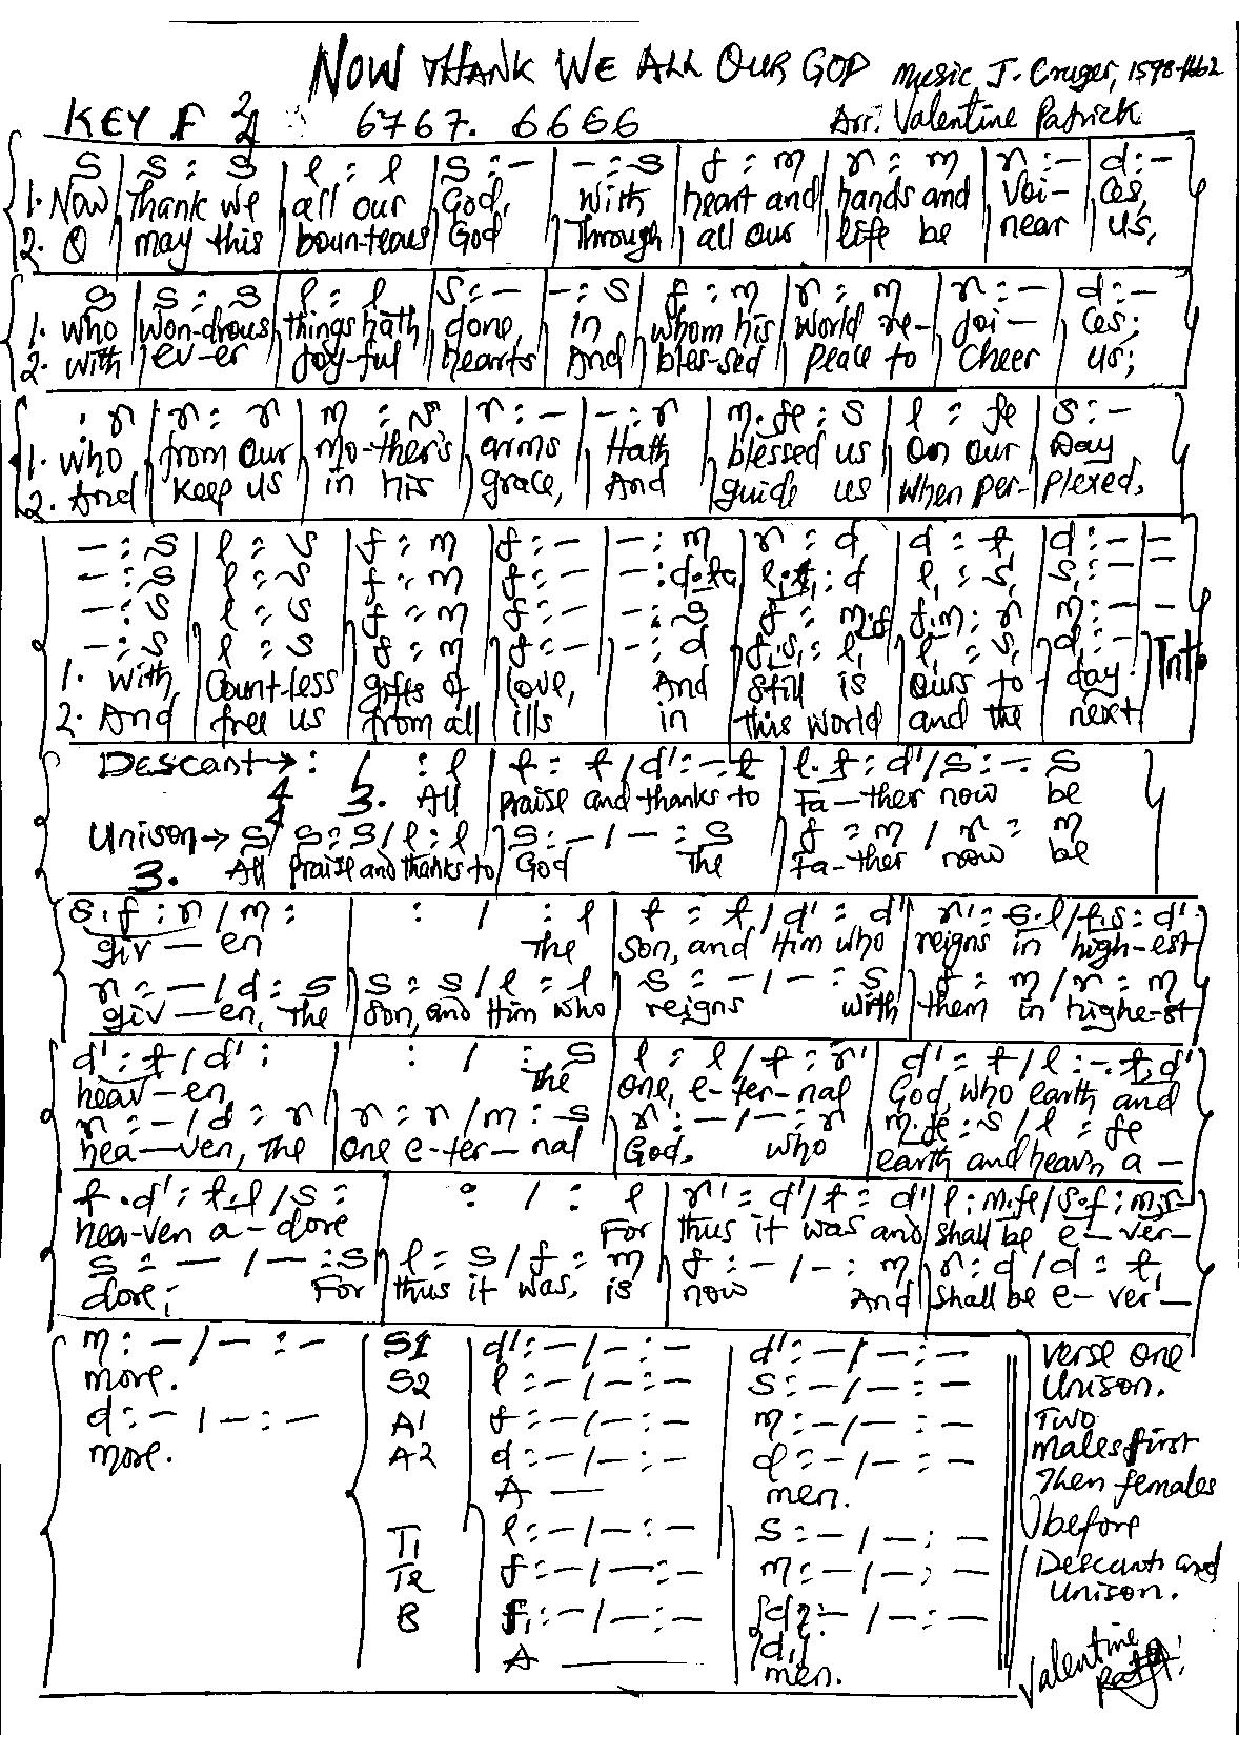 NOW THANK WE ALL OUR GOD Music J. Cruger, 1598-1662
KEY F 2/4 6767. 6666 Arr: Valentine Patrick
s | s : s | l : l | s : - | - : s | f : m | r : m | r : - | d : -
1. Now | thank we | all our | God, | With | heart and | hands and | Voi- | Ces,
2. O | may this | boun-teous | God | Through | all our | life be | near | us,
s | s : s | l : l | s : - | - : s | f : m | r : m | r : - | d : -
1. who | won-drous | things hath | done, | in | whom his | world re- | joi- | Ces;
2. with | ev-er | joy-ful | hearts | And | bles-sed | peace to | Cheer | us;
: r | r : r | m : r | r : - | - : r | m. fe : s | l : fe | s : -
1. who | from our | mo-ther's | arms | Hath | blessed us | On our | Day
2. And | keep us | in his | grace, | And | guide us | when per- | plexed,
- : s | l : s | f : m | f : - | - : m | r : d | d : t, | d : - | -
- : s | l : s | f : m | f : - | - : d.ta, | l,.t, : d | l, : s, | s, : - | -
- : s | l : s | f : m | f : - | - : s | f : m.f | f.m : r | m : - | -
- : s | l : s | f : m | f : - | - : d | f,.s, : l, | l, : s, | d, : - |
1. With, | Count-less | gifts of | love, | And | still is | ours to- | day. | Into
2. And | free us | from all | ills | in | this world | and the | next.
Descant → : / : l | t : t / d' : -.t | l. t : d' / s : -. s
4/4 3. All | Praise and thanks to | Fa-ther now be
Unison → s / s : s / l : l | s : - / - : s | f : m / r : m
3. All Praise and thanks to | God The | Fa-ther now be
s. f : r / m : | : / : l | t : t / d' : d' | r' : s.l / t.s : d'
giv-en | The | Son, and Him who | reigns in high-est
r : - / d : s | s : s / l : l | s : - / - : s | f : m / r : m
giv-en, The | Son, and Him who | reigns with | them in highe-st
d' : t / d' : | : / : s | l : l / t : r' | d' : t / l : -.t,d'
heav-en, | The | One, e-ter-nal | God, who earth and
r : - / d : r | r : r / m : s | r : - / - : r | m. fe : s / l : fe
hea-ven, The | One e-ter-nal | God, who | earth and heav'n a-
t . d' : t.l / s : | : / : l | r' : d' / t : d' | l : m.fe / s.f : m.r
hea-ven a-dore | For | thus it was and | shall be e-ver-
s : - / - : s | l : s / f : m | f : - / - : m | r : d / d : t,
dore; For | thus it was, is | now And | shall be e-ver-
m : - / - : - S1 d' : - / - : - d' : - / - : - Verse one
more. S2 l : - / - : - s : - / - : - Unison.
d : - / - : - A1 f : - / - : - m : - / - : - Two
more. A2 d : - / - : - d : - / - : - males first
A — men. Then females
T1 l : - / - : - s : - / - : - before
T2 f : - / - : - m : - / - : - Descant and
B f, : - / - : - {d : - / - : - Unison.
{d,}
A — men. Valentine